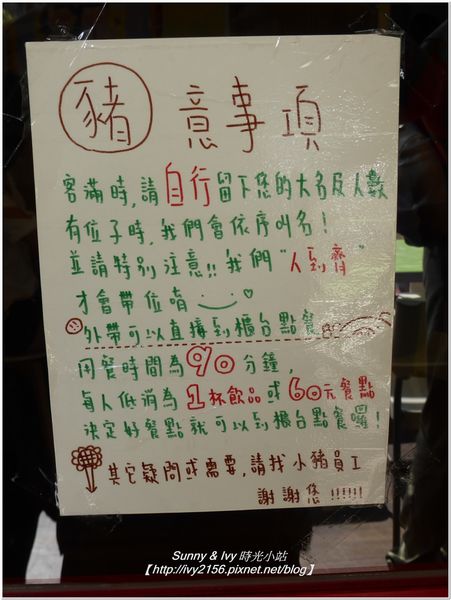 豬意事項
客滿時,請自行留下您的大名及人數
有位子時,我們會依序叫名!
並請特別注意!!我們"人到齊"
才會帶位唷
外帶可以直接到櫃台點餐
用餐時間為90分鐘,
每人低消為1杯飲品或60元餐點
決定好餐點就可以到櫃台點餐囉!
其它疑問或需要,請找小豬員工
謝謝您!!!!!!
Sunny & Ivy 時光小站
【http://ivy2156.pixnet.net/blog】